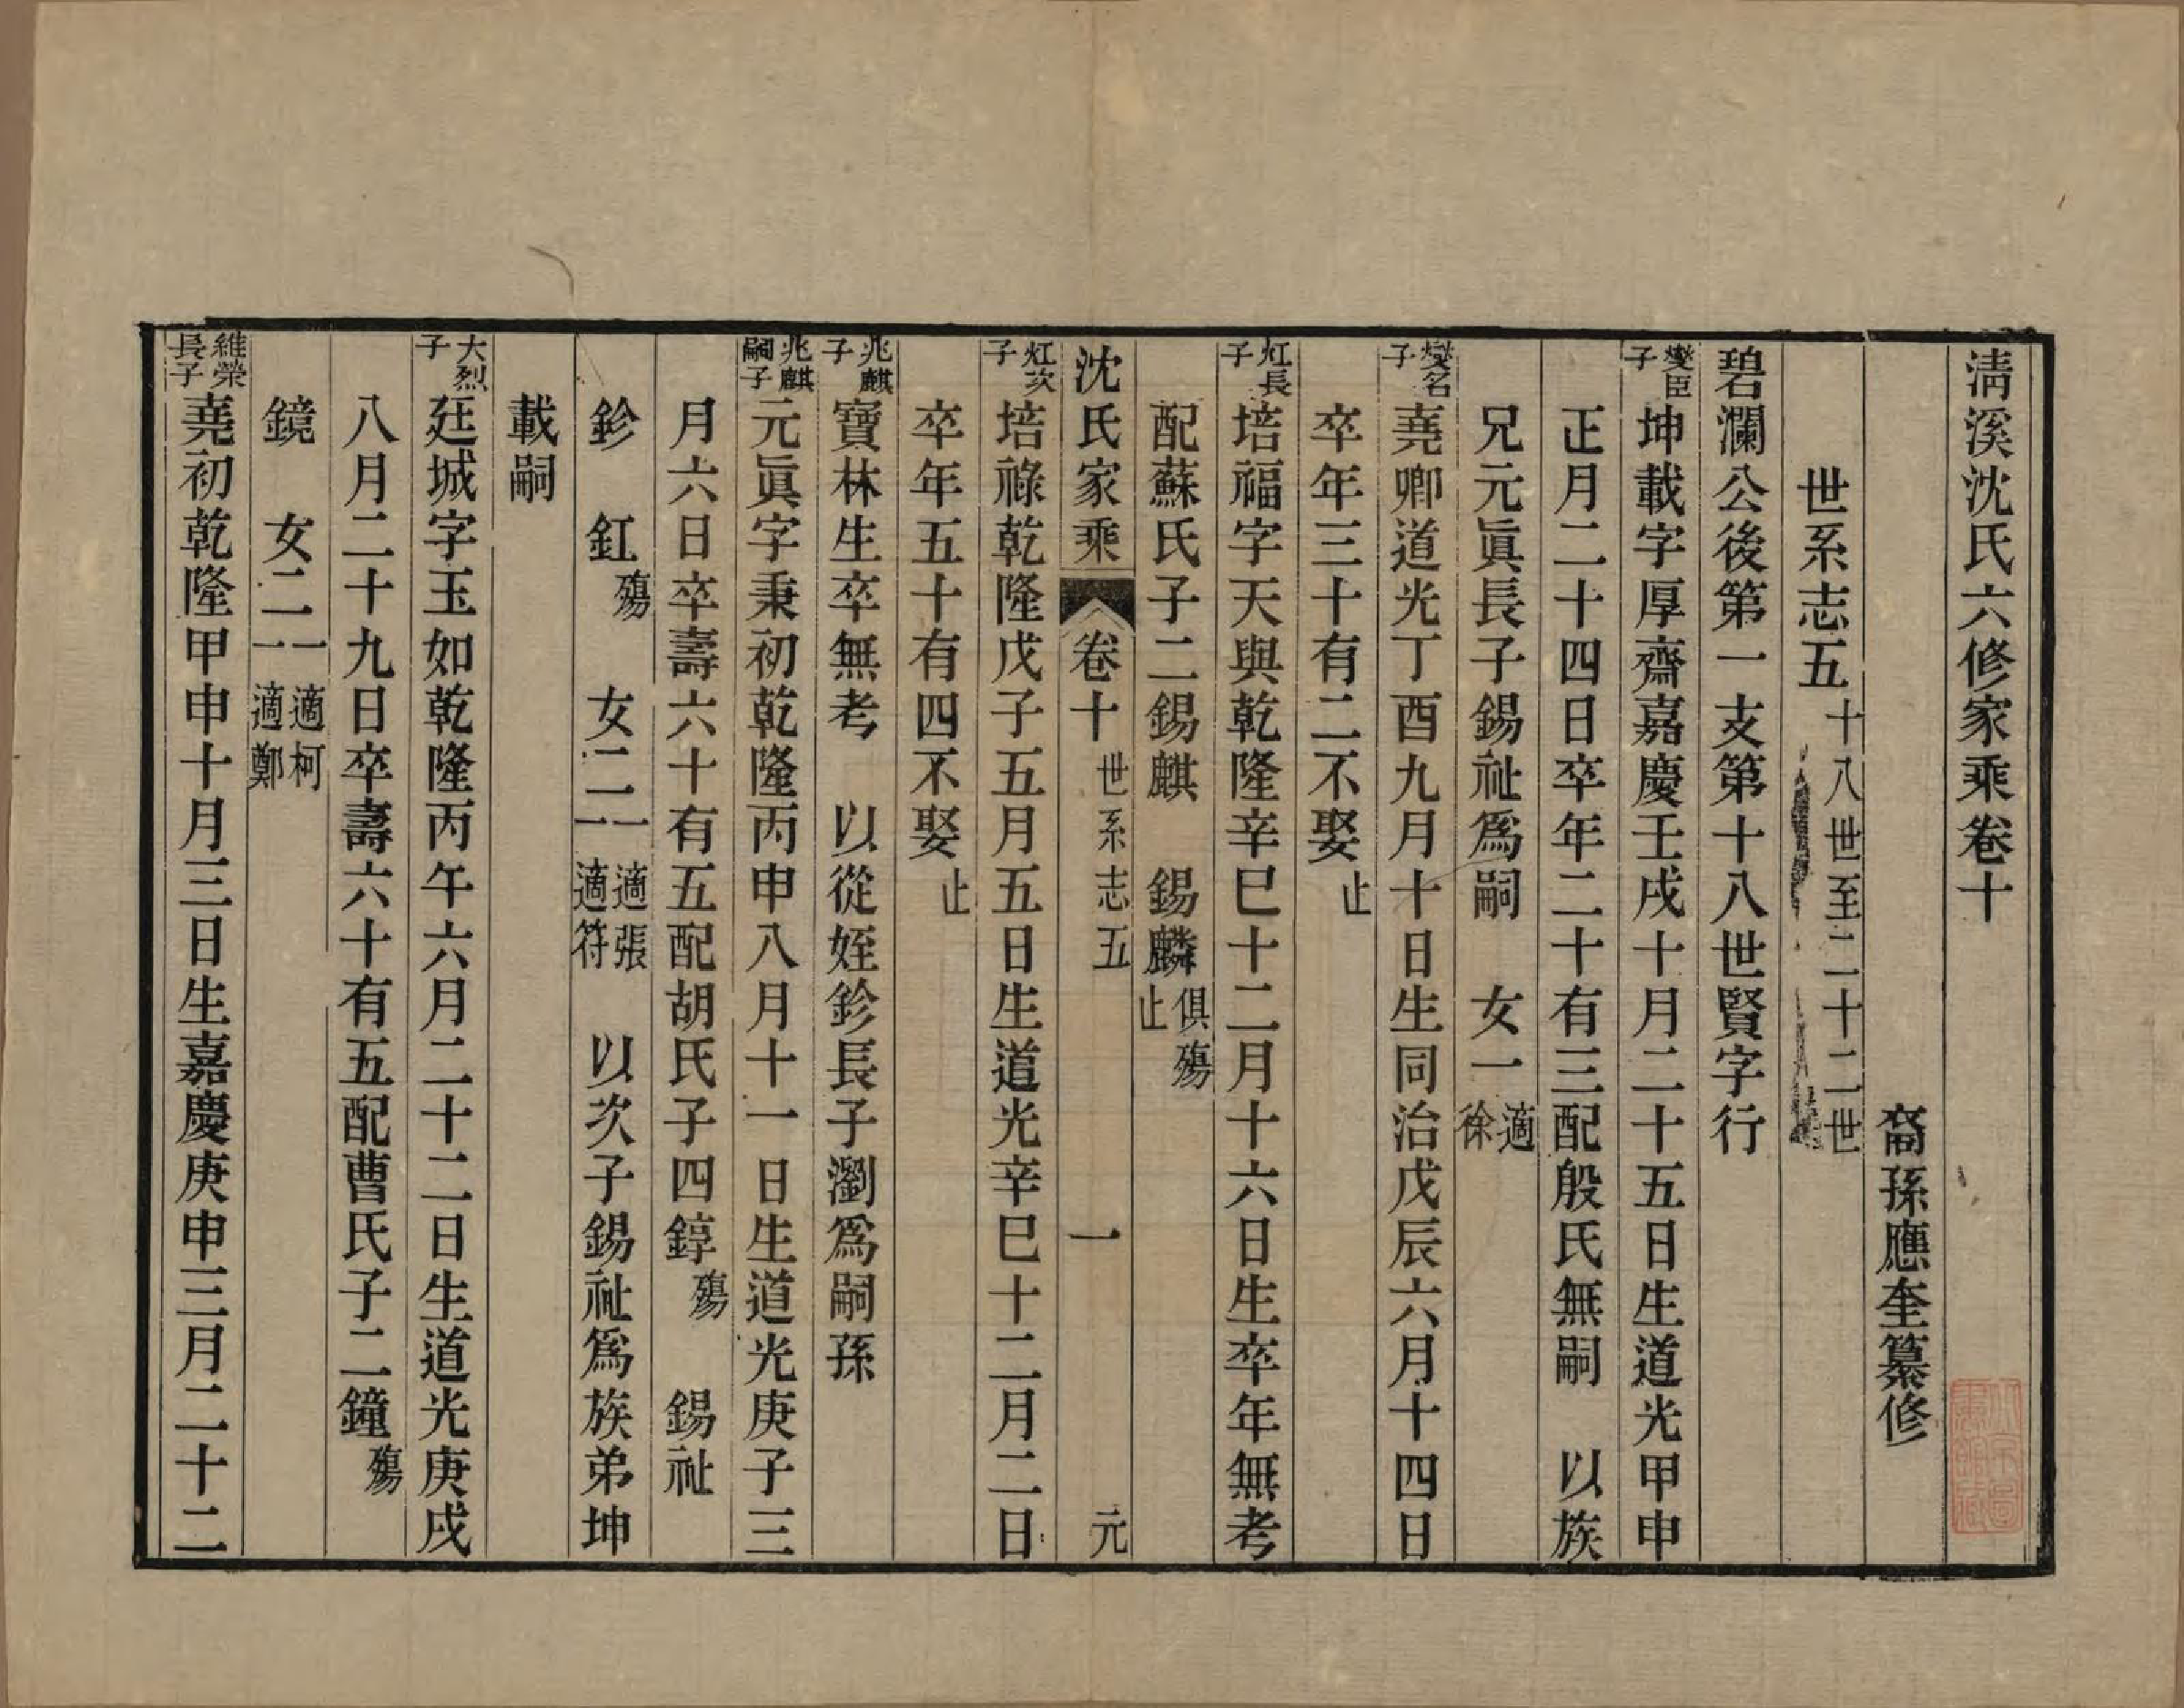 清溪沈氏六修家乘卷十
裔孫應奎纂修
世系志五十八世至二十二世
碧瀾公後第一支第十八世賢字行
燮臣子坤載字厚齋嘉慶壬戌十月二十五日生道光甲申
正月二十四日卒年二十有三配殷氏無嗣　以族
兄元眞長子錫祉爲嗣　女一適徐
燮名子堯卿道光丁酉九月十日生同治戊辰六月十四日
卒年三十有二不娶止
灴長子培福字天與乾隆辛巳十二月十六日生卒年無考
配蘇氏子二錫麒　錫麟俱殤止
沈氏家乘　卷十世系志五　一　元
灴次子培祿乾隆戊子五月五日生道光辛巳十二月二日
卒年五十有四不娶止
兆麒子寶林生卒無考　以從姪鉁長子瀏爲嗣孫
兆麒嗣子元眞字秉初乾隆丙申八月十一日生道光庚子三
月六日卒壽六十有五配胡氏子四錞殤　錫祉
鉁　釭殤　女二一適張一適符　以次子錫祉爲族弟坤
載嗣
大烈子廷城字玉如乾隆丙午六月二十二日生道光庚戌
八月二十九日卒壽六十有五配曹氏子二鐘殤
鏡　女二一適柯一適鄭
維榮長子堯初乾隆甲申十月三日生嘉慶庚申三月二十二